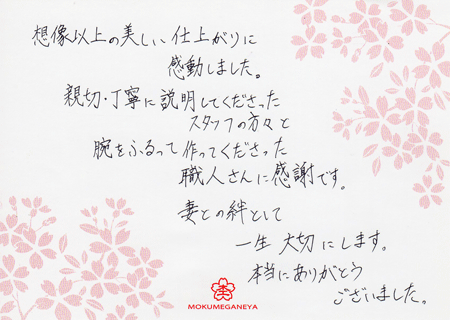 想像以上の美しい仕上がりに
感動しました。
親切・丁寧に説明してくださった
スタッフの方々と
腕をふるって作ってくださった
職人さんに感謝です。
妻との絆として
一生大切にします。
本当にありがとう
ございました。
MOKUMEGANEYA